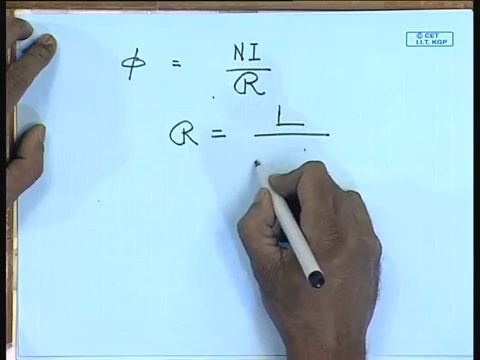 © CET
I.I.T. KGP
φ = NI / R
R = L /